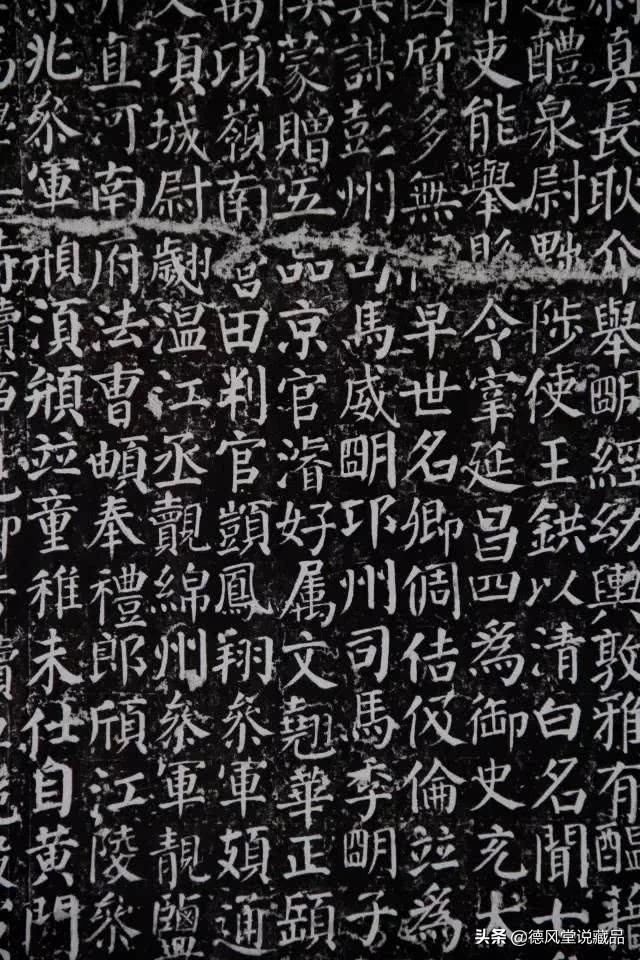 真長耿介舉明經幼輿敦雅有醖藉
醴泉尉黜陟使王鉷以清白名聞七
吏能舉縣令宰延昌四爲御史充太
國質多無早世名卿倜佶伋倫竝爲
兵謀彭州司馬威明邛州司馬季明子
誤蒙贈五品京官濬好属文翹華正
萬項嶺南營田判官顗鳳翔參軍頍通
項城尉翽温江丞覿綿州參軍靚鹽
直河南府法曹頔奉禮郎頎江陵參
京兆參軍須竝童稚未仕自黄門
头条 @德风堂说藏品